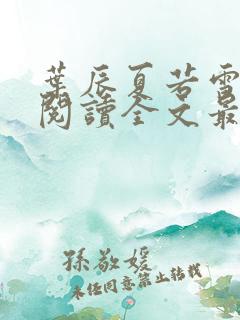 葉辰夏若雪
閱讀全文最
孫敬媛
未经同意禁止转载